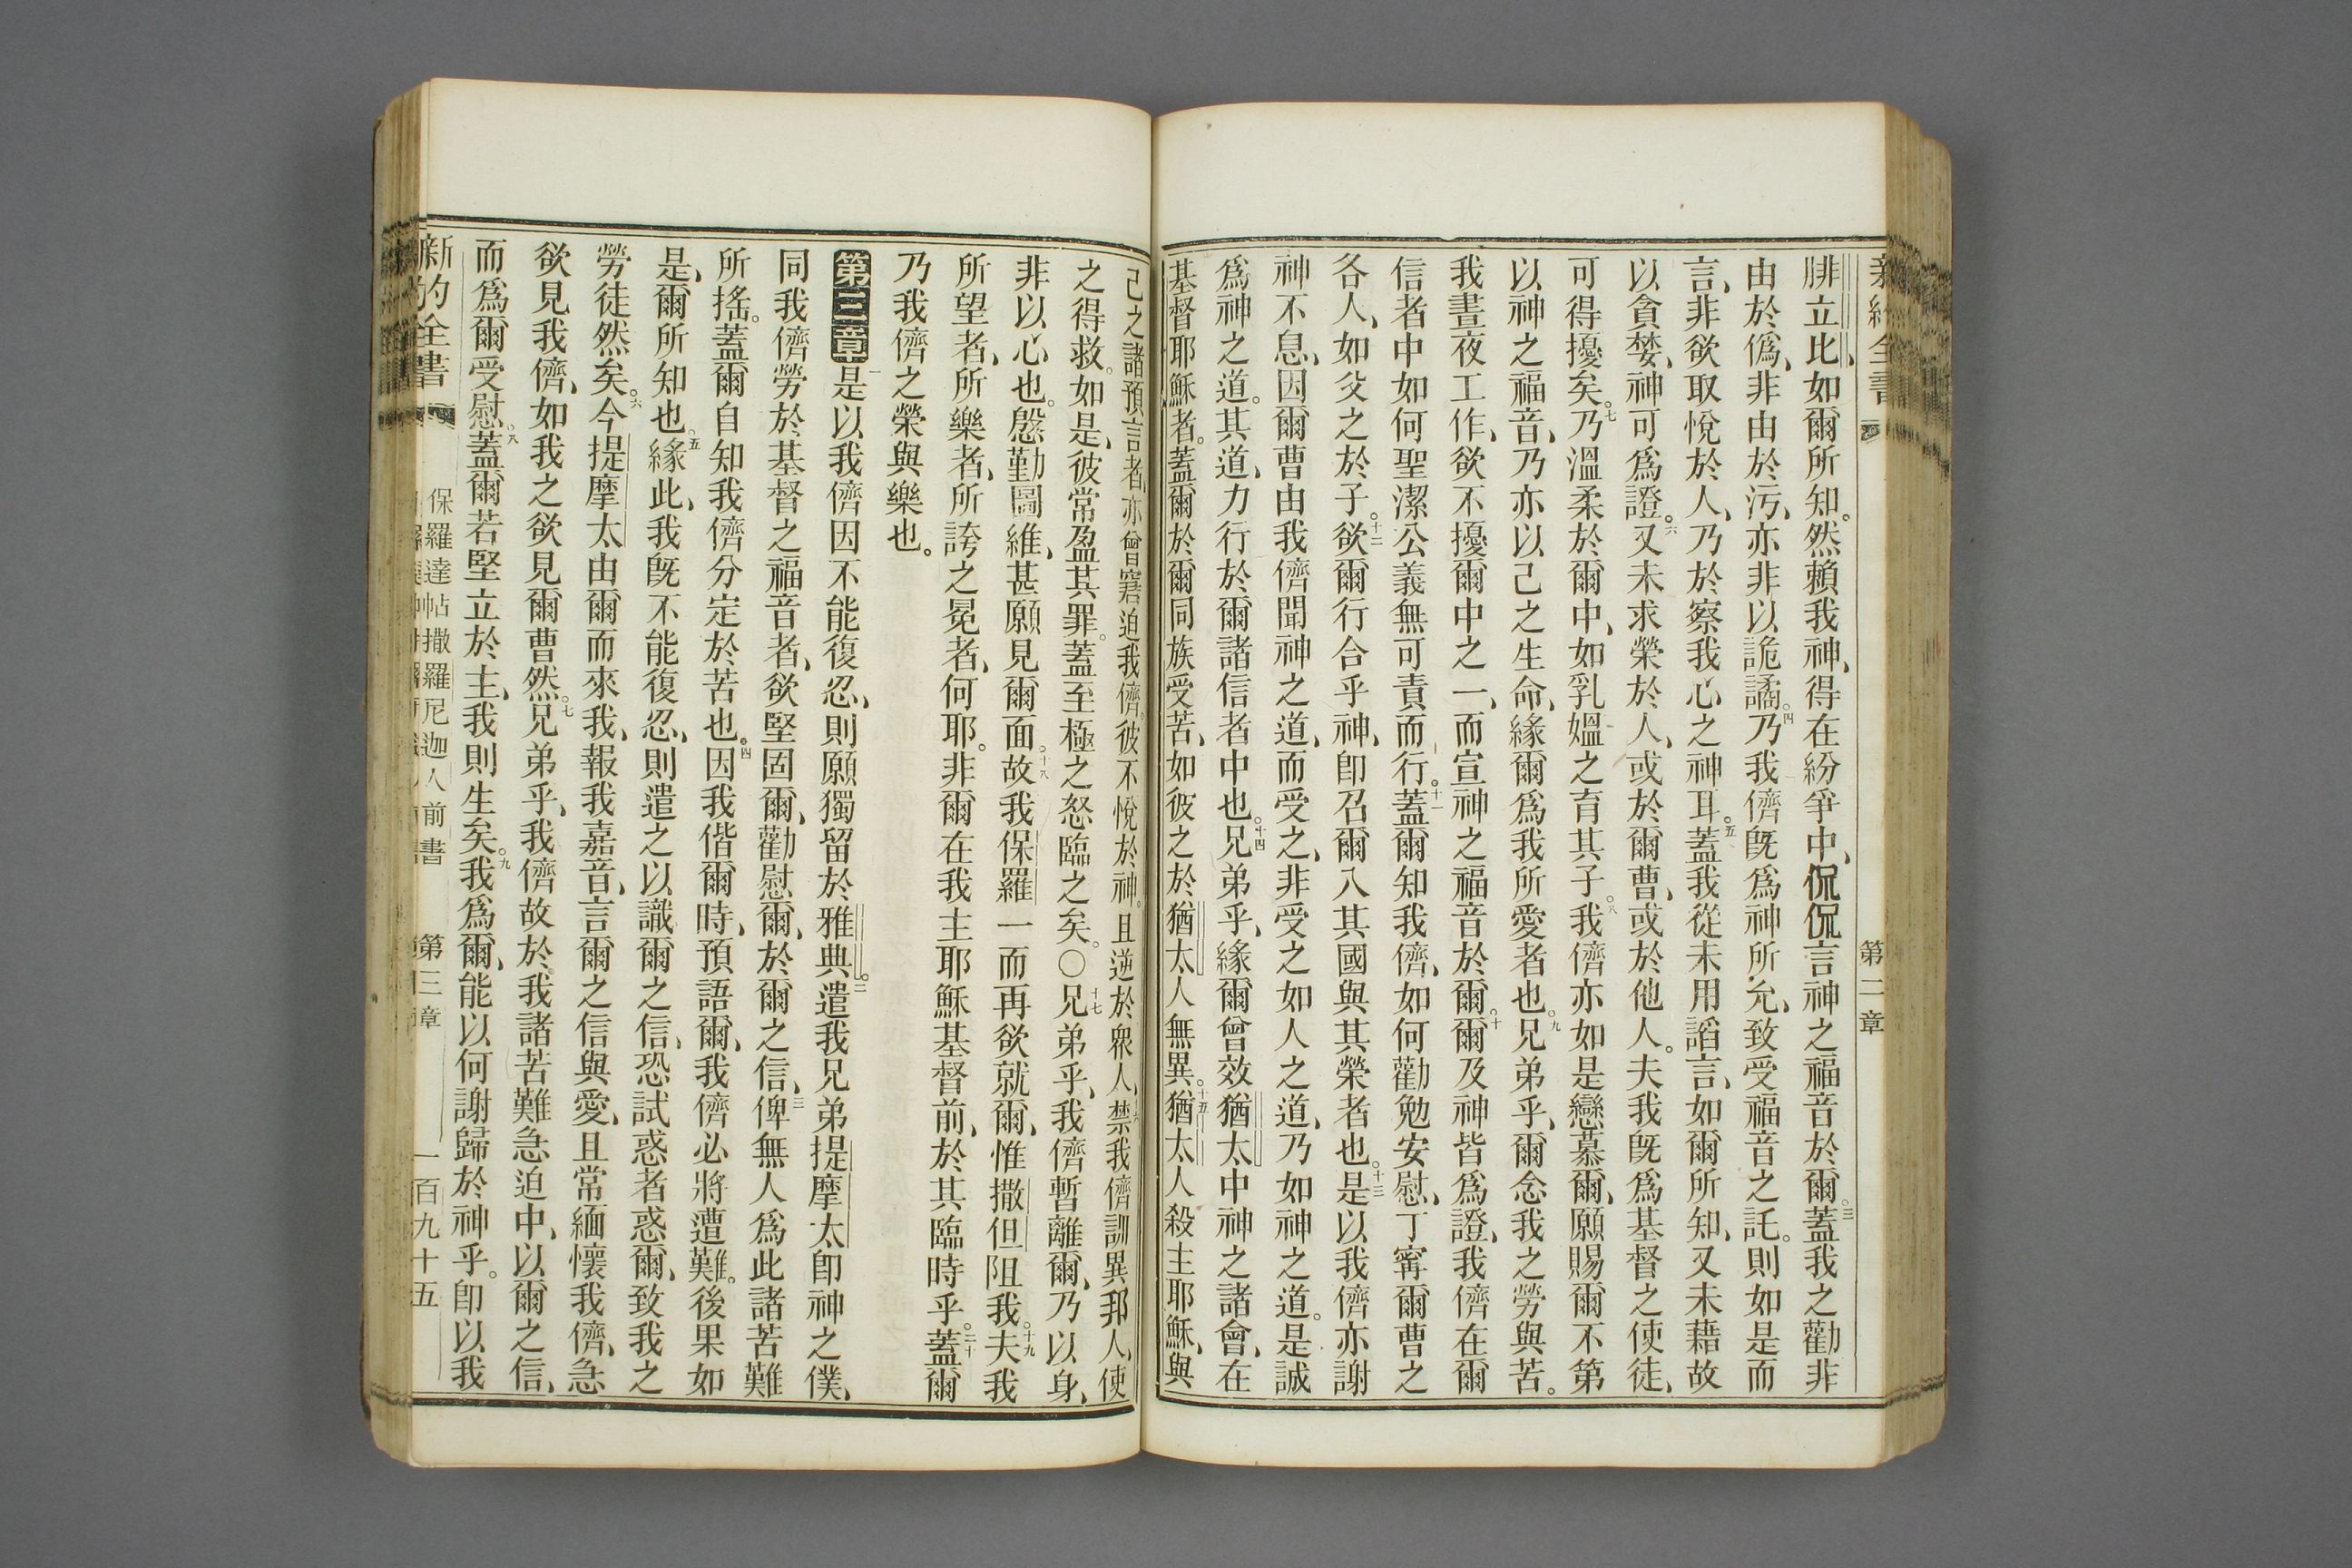 新約全書
第二章
腓立比、如爾所知。然賴我神、得在紛爭中、侃侃言神之福音於爾。三蓋我之勸非
由於僞、非由於污、亦非以詭譎。四乃我儕旣爲神所允、致受福音之託。則如是而
言、非欲取悅於人、乃於察我心之神耳。五蓋我從未用謟言、如爾所知、又未藉故
以貪婪、神可爲證。六又未求榮於人、或於爾曹、或於他人。夫我旣爲基督之使徒、
可得擾矣。七乃溫柔於爾中、如乳媼之育其子。八我儕亦如是戀慕爾、願賜爾不第
以神之福音、乃亦以己之生命、緣爾爲我所愛者也。九兄弟乎、爾念我之勞與苦。
我晝夜工作、欲不擾爾中之一、而宣神之福音於爾。十爾及神皆爲證、我儕在爾
信者中如何聖潔公義無可責而行。十一蓋爾知我儕、如何勸勉安慰、丁寗爾曹之
各人、如父之於子。十二欲爾行合乎神、卽召爾入其國與其榮者也。十三是以我儕亦謝
神不息、因爾曹由我儕聞神之道、而受之、非受之如人之道、乃如神之道。是誠
爲神之道。其道、力行於爾諸信者中也。十四兄弟乎、緣爾曾效猶太中神之諸會、在
基督耶穌者。蓋爾於爾同族受苦、如彼之於猶太人無異。十五猶太人殺主耶穌、與
己之諸預言者、亦曾窘迫我儕。彼不悅於神。且逆於衆人、十六禁我儕訓異邦人、使
之得救。如是、彼常盈其罪。蓋至極之怒臨之矣。〇十七兄弟乎、我儕暫離爾、乃以身、
非以心也。慇勤圖維、甚願見爾面。十八故我保羅一而再欲就爾、惟撒但阻我。十九夫我
所望者、所樂者、所誇之冕者、何耶。非爾在我主耶穌基督前、於其臨時乎。二十蓋爾
乃我儕之榮與樂也。
第三章一是以我儕因不能復忍、則願獨留於雅典。二遣我兄弟提摩太卽神之僕、
同我儕勞於基督之福音者、欲堅固爾、勸慰爾、於爾之信、三俾無人爲此諸苦難
所搖。蓋爾自知我儕分定於苦也。四因我偕爾時、預語爾、我儕必將遭難。後果如
是、爾所知也。五緣此、我旣不能復忍、則遣之以識爾之信、恐試惑者惑爾、致我之
勞徒然矣。六今提摩太由爾而來我、報我嘉音、言爾之信與愛、且常緬懷我儕、急
欲見我儕、如我之欲見爾曹然。七兄弟乎、我儕故於我諸苦難急迫中、以爾之信、
而爲爾受慰。八蓋爾若堅立於主、我則生矣。九我爲爾、能以何謝歸於神乎。卽以我
新約全書
保羅達帖撒羅尼迦人前書
第三章
一百九十五